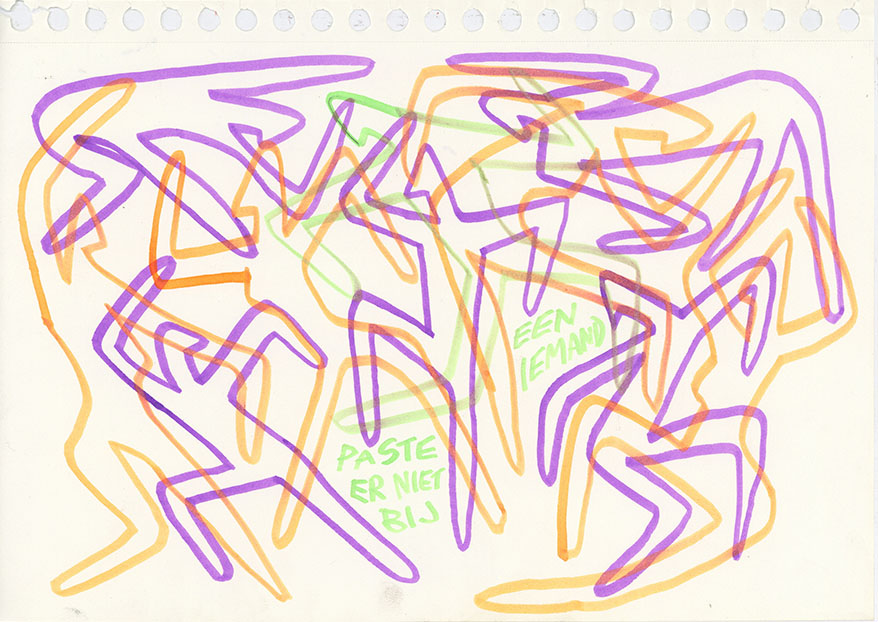 EEN
IEMAND
PASTE
ER NIET
BIJ